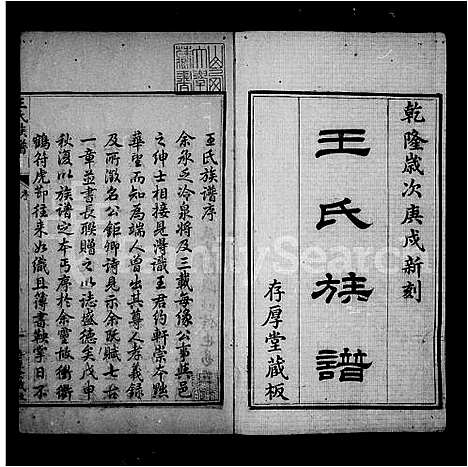 乾隆歲次庚戌新刻
王氏族譜
存厚堂藏板
王氏族譜序
余承乏冷泉將及三載每緣公事與邑
之紳士相接見得識王君約軒榮本黙
華望而知為端人曾出其尊人孝義錄
及所徵名公鉅卿詩見示余既賦七古
一章並書長聯贈之以誌盛德矣戊申
秋復以族譜之本丐序於余璽
鶴符虎節往來如織且簿書鞅掌日不
FamilySearch